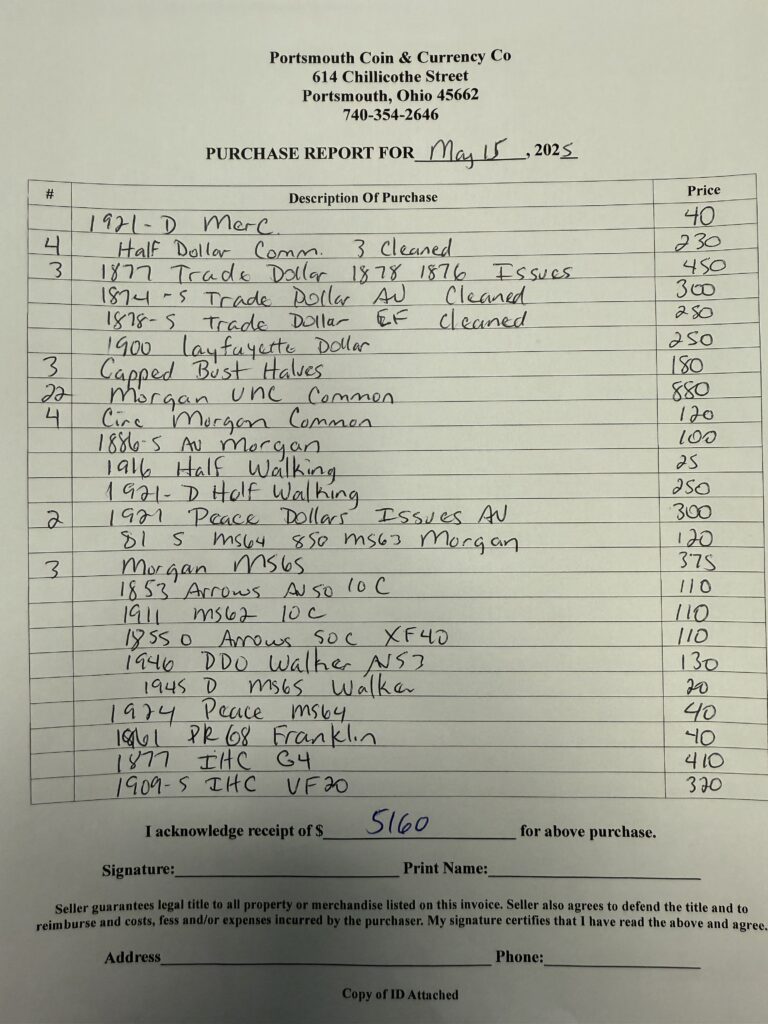 Portsmouth Coin & Currency Co
614 Chillicothe Street
Portsmouth, Ohio 45662
740-354-2646
PURCHASE REPORT FOR May 15, 2025
# Description Of Purchase Price
1921-D Merc. 40
4 Half Dollar Comm. 3 Cleaned 230
3 1877 Trade Dollar 1878 1876 Issues 450
1874-S Trade Dollar AU Cleaned 300
1878-S Trade Dollar EF Cleaned 250
1900 Layfuyette Dollar 250
3 Capped Bust Halves 180
22 Morgan UNC Common 880
4 Circ Morgan Common 120
1886-S AU Morgan 100
1916 Half Walking 25
1921-D Half Walking 250
2 1921 Peace Dollars Issues AU 300
81 S MS64 850 MS63 Morgan 120
3 Morgan MS65 375
1853 Arrows AU50 10C 110
1911 MS62 10C 110
1855 O Arrows 50C XF40 110
1946 DDO Walker AU53 130
1945 D MS65 Walker 20
1924 Peace MS64 40
1961 PR68 Franklin 40
1877 IHC G4 410
1909-S IHC VF20 320
I acknowledge receipt of $ 5160 for above purchase.
Signature: Print Name:
Seller guarantees legal title to all property or merchandise listed on this invoice. Seller also agrees to defend the title and to
reimburse and costs, fess and/or expenses incurred by the purchaser. My signature certifies that I have read the above and agree.
Address Phone:
Copy of ID Attached